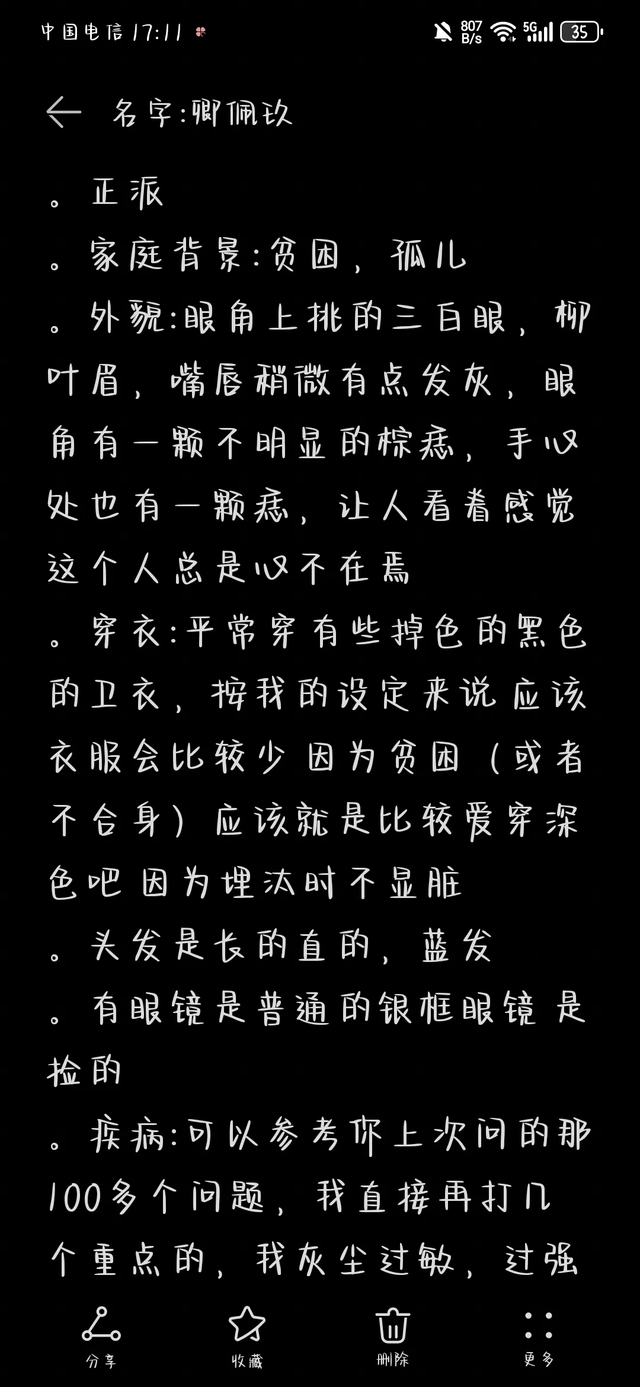 中国电信 17:11 807 B/s 5G 35
名字:卿佩玖
。正派
。家庭背景:贫困，孤儿
。外貌:眼角上挑的三白眼，柳
叶眉，嘴唇稍微有点发灰，眼
角有一颗不明显的棕痣，手心
处也有一颗痣，让人看着感觉
这个人总是心不在焉
。穿衣:平常穿有些掉色的黑色
的卫衣，按我的设定来说 应该
衣服会比较少 因为贫困（或者
不合身）应该就是比较爱穿深
色吧 因为埋汰时不显脏
。头发是长的直的，蓝发
。有眼镜是普通的银框眼镜 是
捡的
。疾病:可以参考你上次问的那
100多个问题，我直接再打几
个重点的，我灰尘过敏，过强
分享 收藏 删除 更多